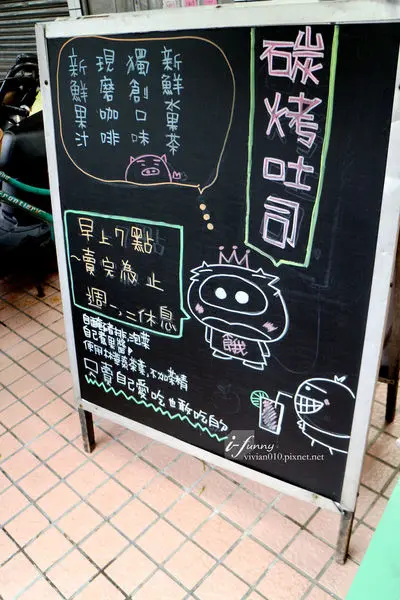 碳烤吐司
新鮮水果茶
獨創口味
現磨咖啡
新鮮果汁
早上7點
~賣完為止
週一,二休息
自己煮果醬
只賣自己愛吃也敢吃的
餓
i-funny
vivian010.pixnet.net